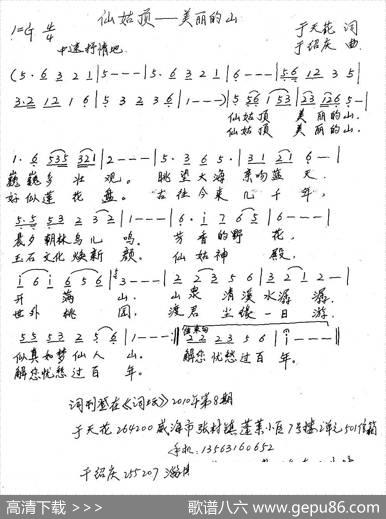 仙姑顶——美丽的山
1=G 4/4
于天花 词
中速 抒情地
于绍庆 曲
(5· 6 3 2 1 | 5 - - - | 5· 6 3 2 1 | 6 - - - | 5 6 1 2 3 5 |
3·2 1 2 1 6 | 5 3 2 3 6 | 1 - - -) | 5 5 6 1 5 3 | 2 3 1 2 6 5 - |
仙姑顶 美丽的山.
仙姑顶 美丽的山.
1· 6 5 3 5 3 2 1 | 2 - - - | 5· 3 6 5 · | 3 1 2 1 6 - |
巍巍多 壮 观。 眺望大海 亲吻蓝 天.
好似莲 花 盘。 古往今来 几 千 年,
5·5 5 3 2 3 2 | 1 - - - | 6· i 7 6 5 | 6 - - - |
晨夕朝林鸟儿 鸣, 芳香的野 花,
玉石文化焕新 颜。 仙姑神 殿,
i 6 i 6 5 6 | 3 - - - | 2 2 3 5 6 | 3 2 1 2 - |
开 满 山. 山泉 清溪水潺 潺.
世外 桃 园, 渡君 尘缘一日 游.
5 5 5 3 2 5 6 | 1 - - - :‖ 2 2 2 3 5 6 | i - - - ‖
似真如梦仙人 山. 解您忧愁过百 年。
解您忧愁过百 年.
词刊登在《词坛》2010年第8期
于天花 264200 威海市张村镇蓬莱小区7号楼2单元501信箱
手机: 13563160652
于绍庆 255207
高清下载 >>> 歌谱八六 www.gepu86.com